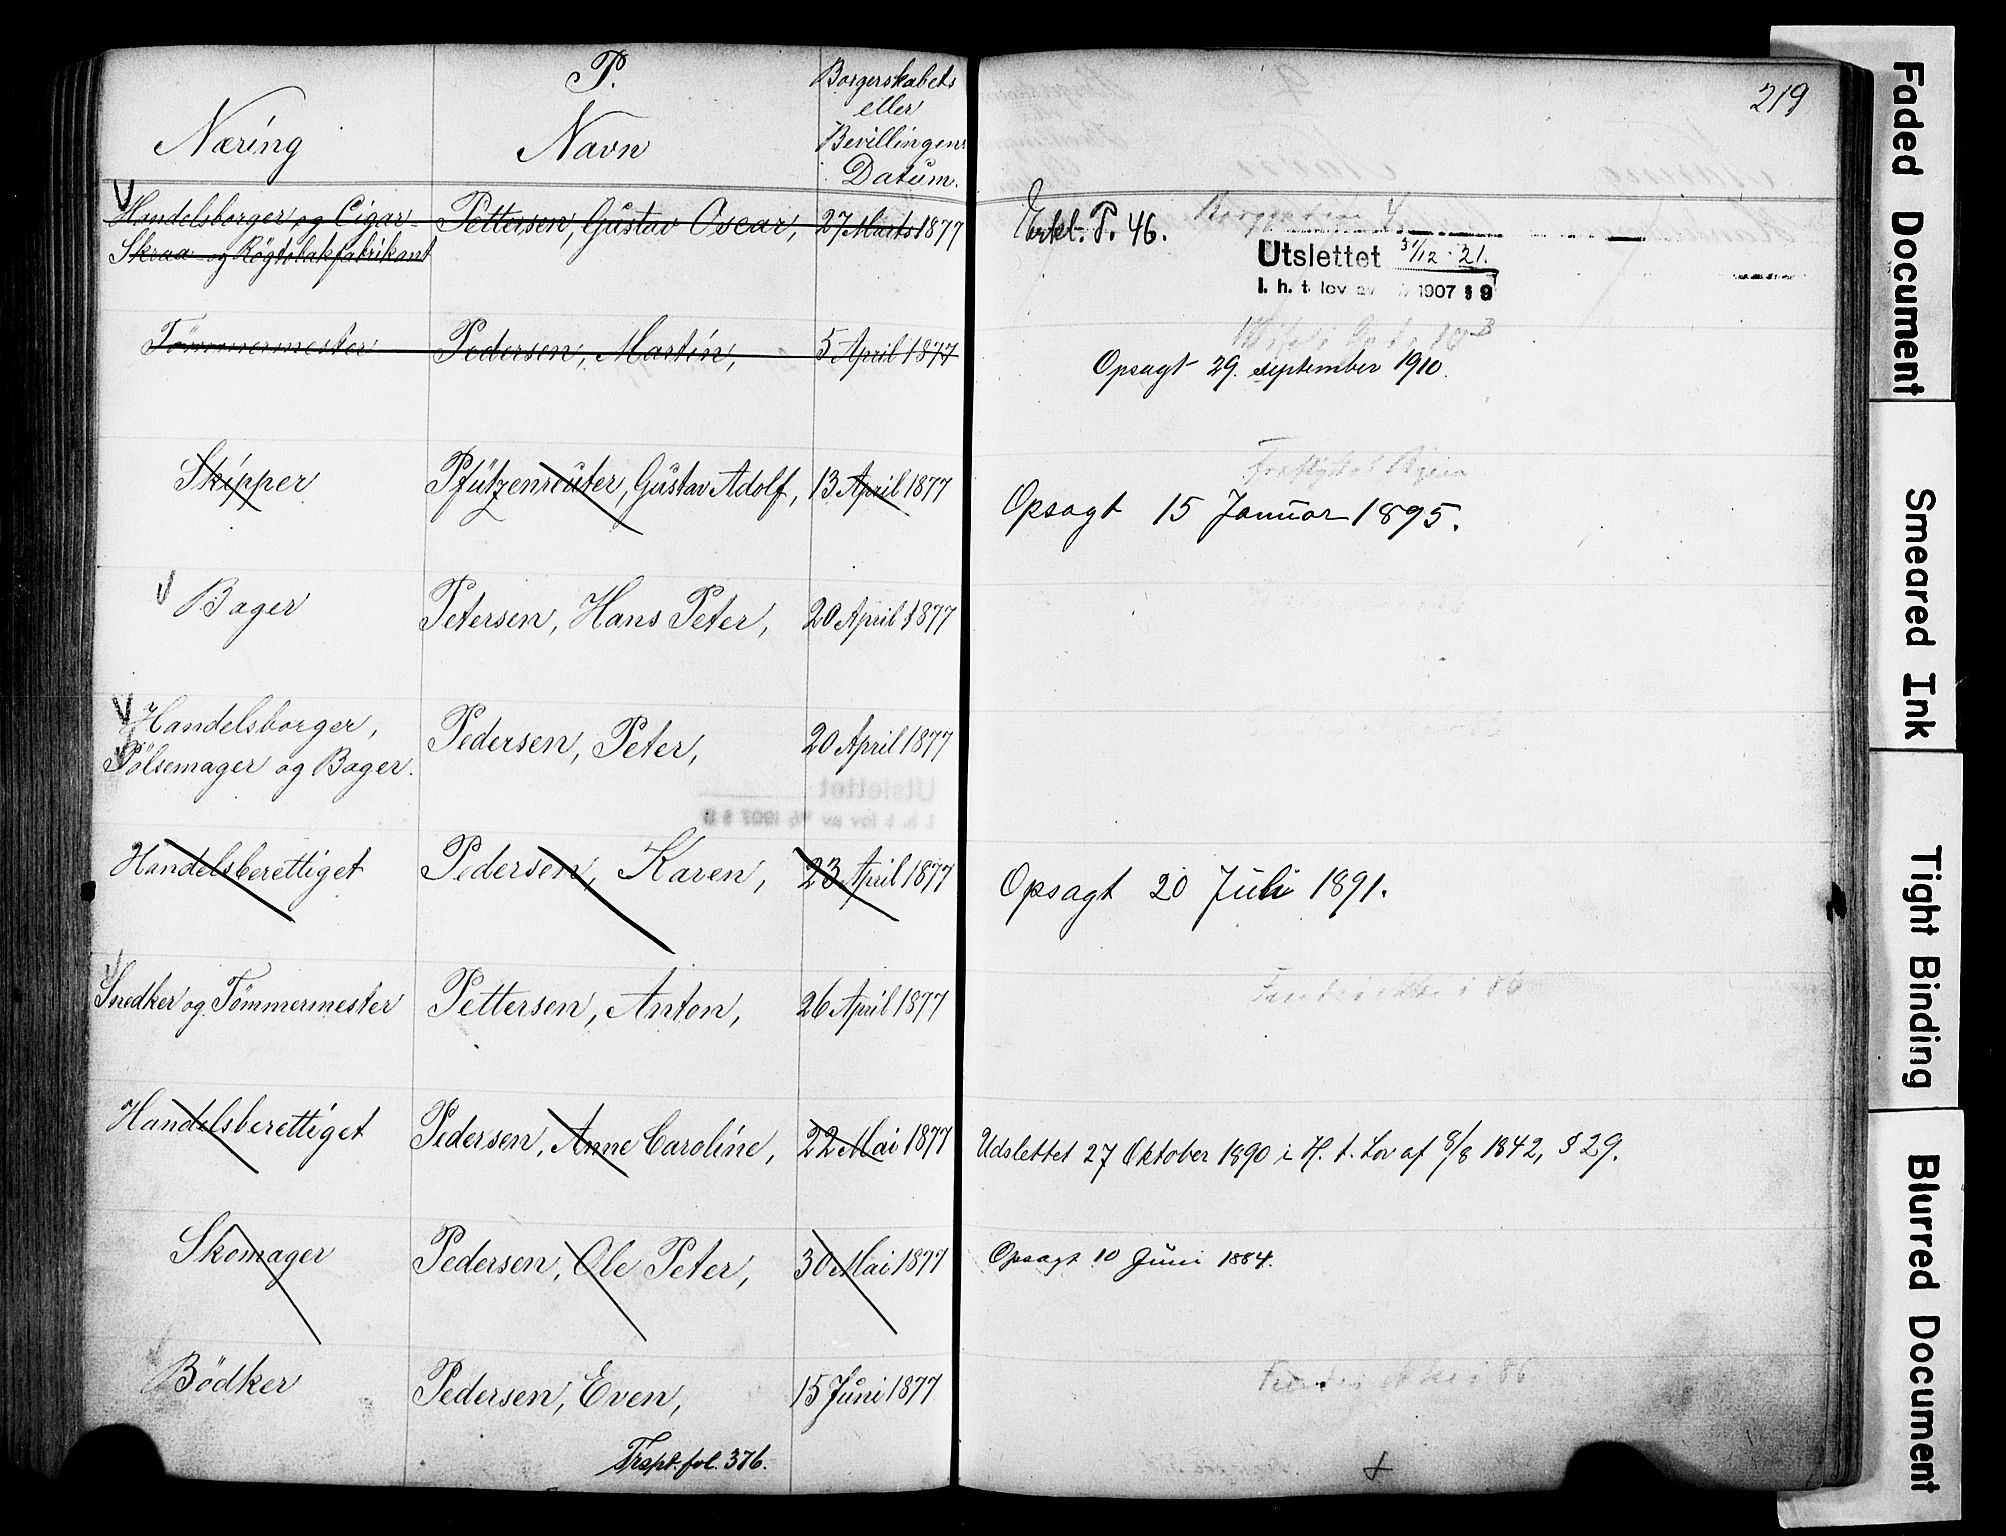 P.
Næring
Navn
Borgerskabets
eller
Bevillingens
Datum.
219
Handelsborger og Cigar- Pettersen, Gustav Oscar, 27 Marts 1877
Skraa- og Rögtobakfabrikant
Erkl. P. 46.
Utslettet 31/12 - 21.
I. h. t. lov av 1907 § 9
Tømmermester Pedersen, Martin, 5 April 1877
Opsagt 29. september 1910.
Skipper Pfützenreuter, Gustav Adolf, 13 April 1877
Opsagt 15 Januar 1895.
Bager Petersen, Hans Peter, 20 April 1877
Handelsborger,
Pölsemager og Bager. Pedersen, Peter, 20 April 1877
Handelsberettiget Pedersen, Karen, 23 April 1877
Opsagt 20 Juli 1891.
Snedker og Tömmermester Pettersen, Anton, 26 April 1877
Handelsberettiget Pedersen, Anne Caroline, 22 Mai 1877
Udslettet 27 Oktober 1890 i H. t. Lov af 8/8 1842, § 29.
Skomager Pedersen, Ole Peter, 30 Mai 1877
Opsagt 10 Juni 1884.
Bödker Pedersen, Even, 15 Juni 1877
Trspt. fol. 376.
Faded Document
Smeared Ink
Tight Binding
Blurred Document